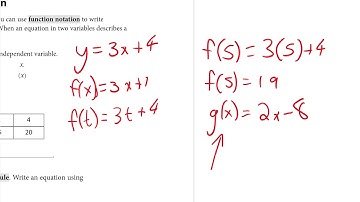 n
u can use function notation to write
When an equation in two variables describes a
ndependent variable.
x
(x)
4
20
ule. Write an equation using
y = 3x+4
f(x)=3x+1
f(t)=3t+4
f(5)=3(5)+4
f(5)=19
g(x)=2x-8